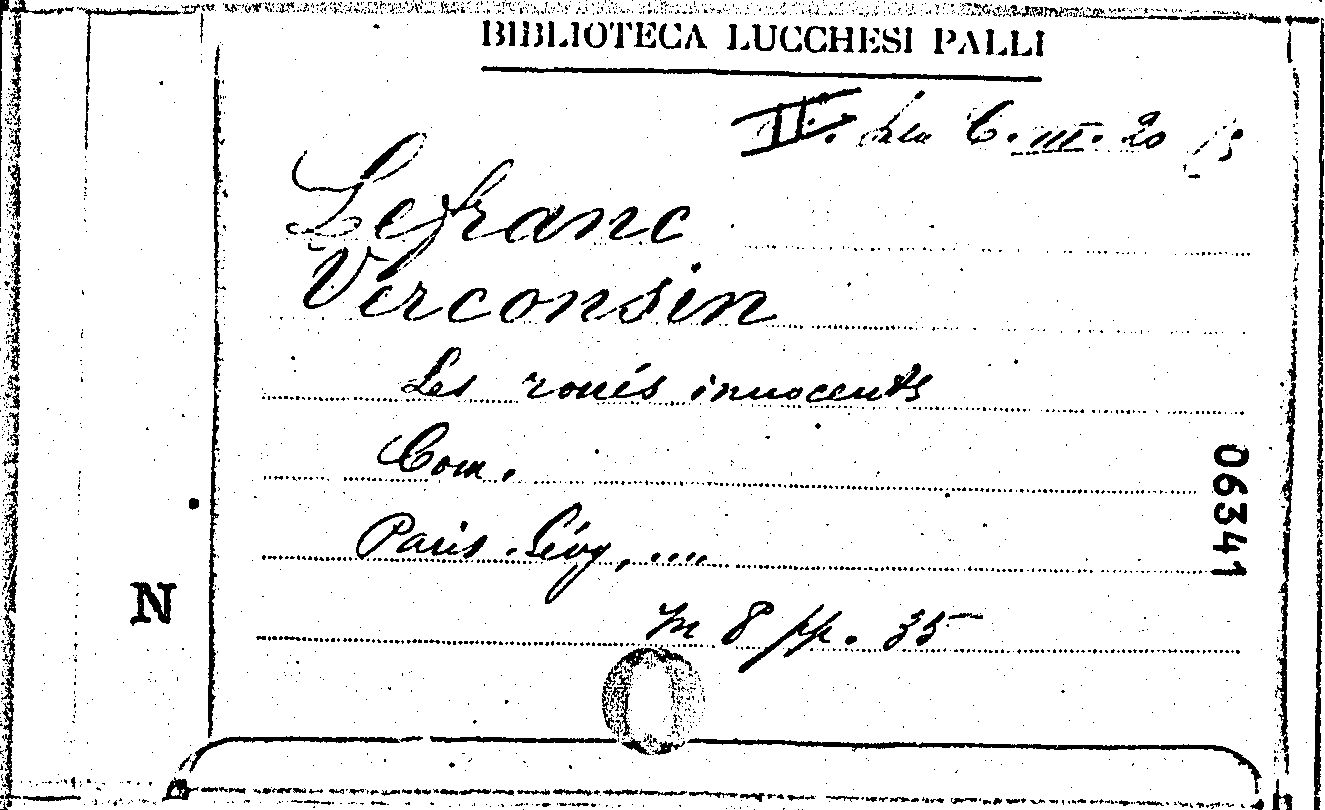 BIBLIOTECA LUCCHESI PALLI
II. Sala C. III. 20 (13
Lefranc
Verconsin
Les roués innocents
Com.
Paris. Lévy, ....
In 8 pp. 35
06341
N